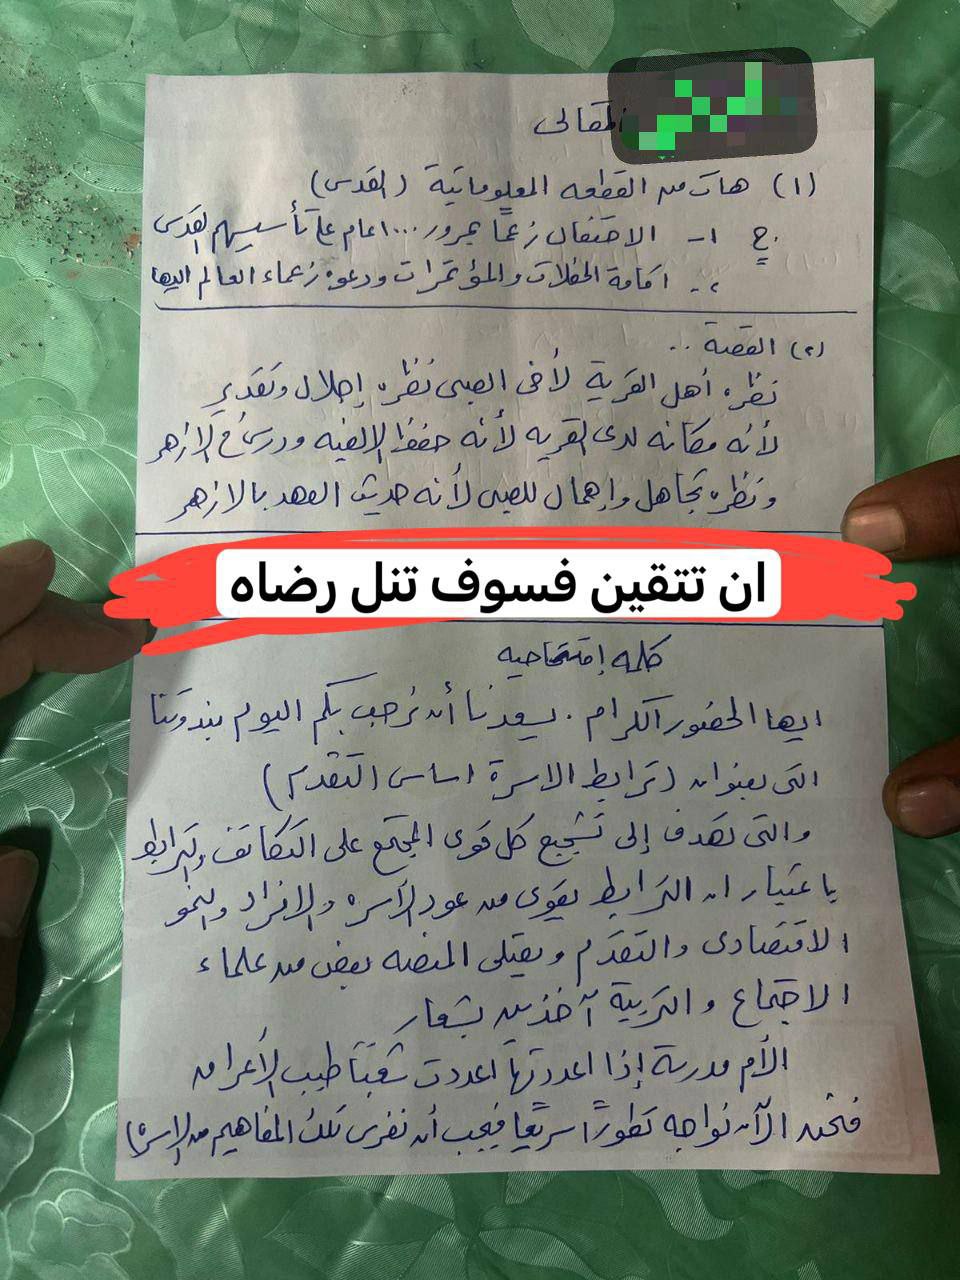 المقالى
(١) هات من القطعه المعلوماتية (القدس)
ج ١- الاحتفال زعمًا بمرور ٣٠٠٠ عام على تأسيسهم القدس
٢- اقامة الحفلات والمؤتمرات ودعوه زعماء العالم اليها
(٢) القصة ..
نظره أهل القرية لأخى الصبى نظره إجلال وتقدير
لأنه مكانه لدى القريه لأنه حفظ الالفيه ودرس الازهر
ونظره تجاهل وإهمال للصبى لأنه حديث العهد بالازهر
ان تتقين فسوف تنل رضاه
كلمه إفتتاحيه
ايها الحضور الكرام . يسعدنا أن نرحب بكم اليوم بندوتنا
التى بعنوان (ترابط الاسرة اساس التقدم)
والتى تهدف إلى تشجيع كل قوى المجتمع على التكاتف والترابط
باعتبار ان الترابط يقوى من عود الآسره والافراد والنمو
الاقتصادى والتقدم ويعتلى المنصه بعض من علماء
الاجتماع والتربية آخذين بشعار
الأم مدرسة إذا اعددتها اعددت شعبًا طيب الأعراق
فنحن الآن نواجه تطورًا سريعًا فيجب أن نغرس تلك المفاهيم من الاسره)